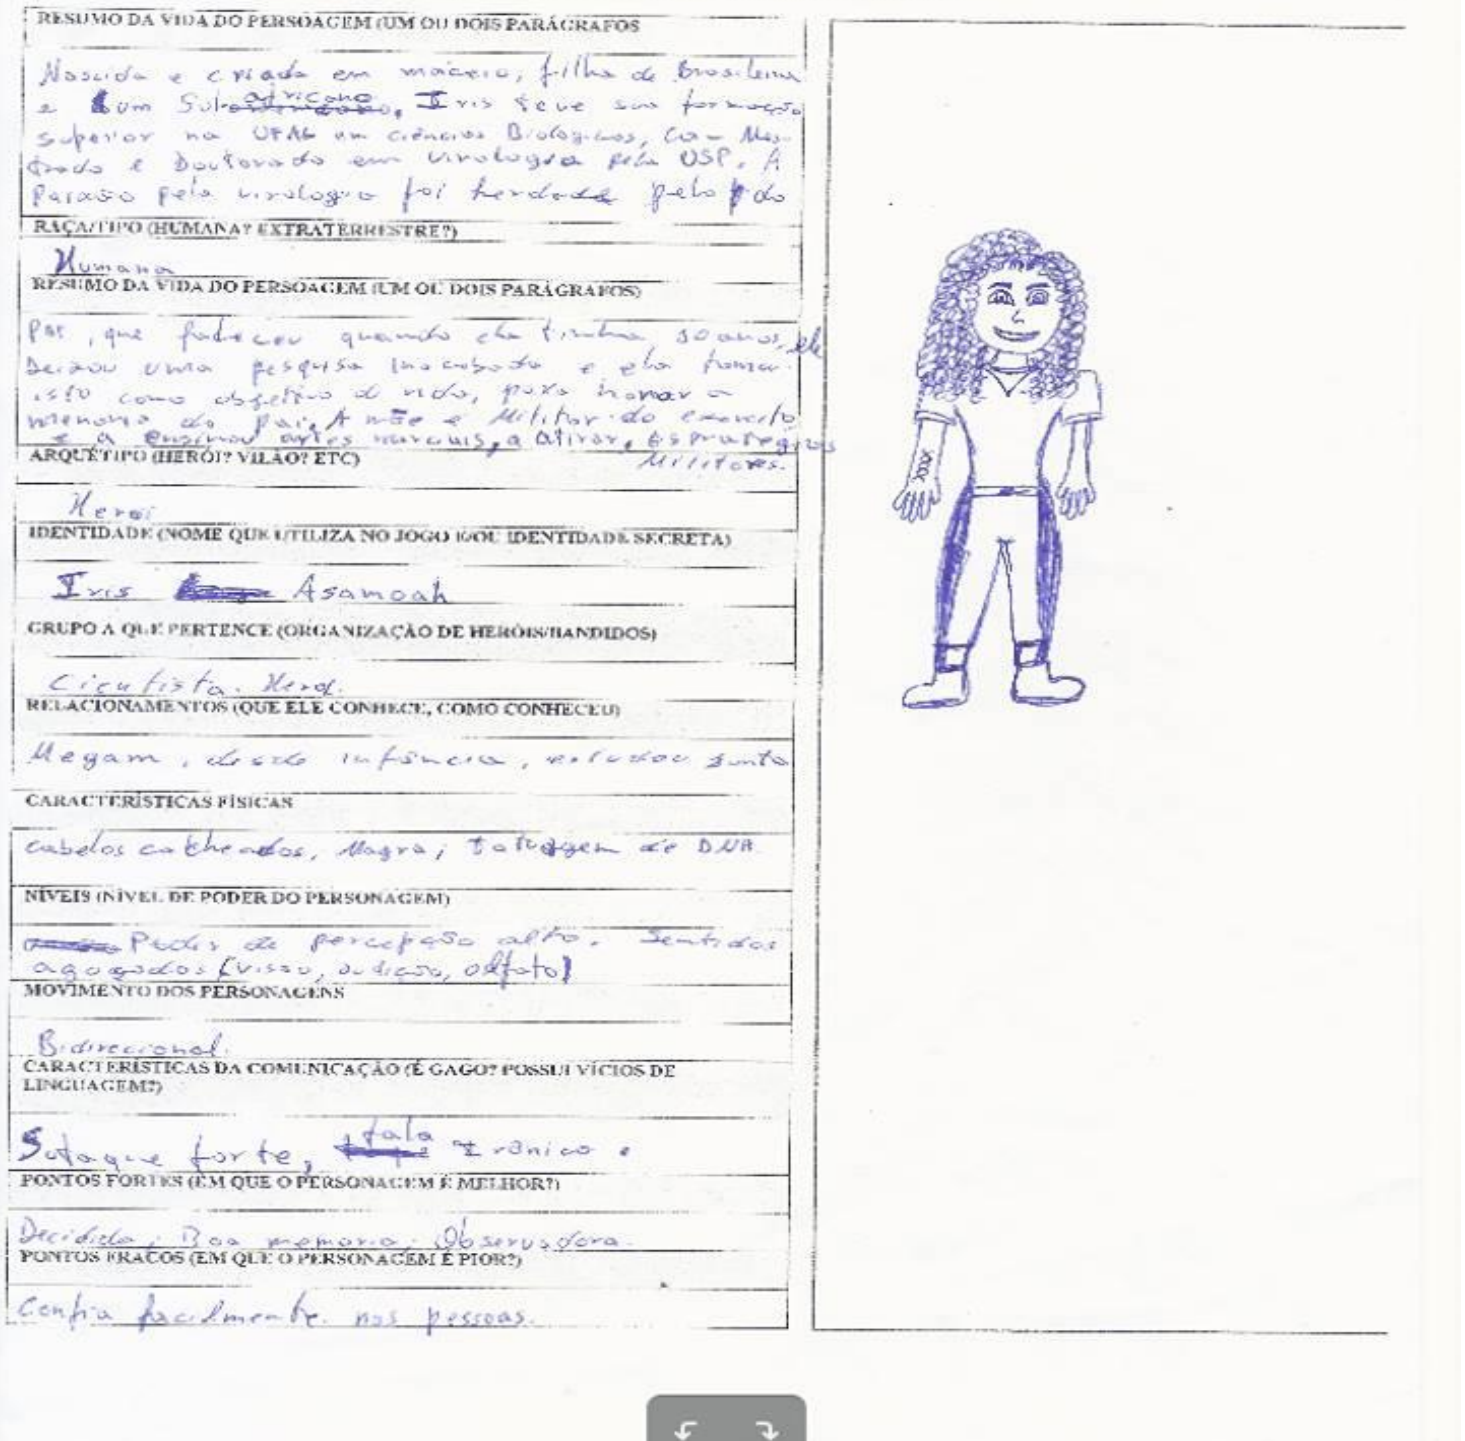 RESUMO DA VIDA DO PERSOAGEM (UM OU DOIS PARÁGRAFOS
Nascida e criada em maceio, filha de Brasileira
e um Sul africano, Iris teve sua formação
superior na UFAL em ciências Biológicas, com Mes-
trado e Doutorado em virologia pela USP. A
Paixão pela virologia foi herdada pelo do
RAÇA/TIPO (HUMANA? EXTRATERRESTRE?)
Humana
RESUMO DA VIDA DO PERSOAGEM (UM OU DOIS PARÁGRAFOS)
Pai, que faleceu quando ela tinha 10 anos, ele
Deixou uma pesquisa inacabada e ela tomar
isto como objetivo de vida, para honrar a
memoria do pai. A mãe é Militar do exercito
e a ensinou artes marciais, a atirar, Estrategias
Militares.
ARQUÉTIPO (HERÓI? VILÃO? ETC)
Heroi
IDENTIDADE (NOME QUE UTILIZA NO JOGO E/OU IDENTIDADE SECRETA)
Iris Asamoah
GRUPO A QUE PERTENCE (ORGANIZAÇÃO DE HERÓIS/BANDIDOS)
Cientista.
RELACIONAMENTOS (QUE ELE CONHECE, COMO CONHECEU)
Megam, desde infância, estudou junto
CARACTERÍSTICAS FÍSICAS
Cabelos cacheados, Magra, tatuagem de DNA.
NÍVEIS (NÍVEL DE PODER DO PERSONAGEM)
Poder de percepção alto. Sentidos
aguçados (visão, audição, olfato)
MOVIMENTO DOS PERSONAGENS
Bidirecional.
CARACTERÍSTICAS DA COMUNICAÇÃO (É GAGO? POSSUI VÍCIOS DE
LINGUAGEM?)
Sotaque forte, fala Irônico.
PONTOS FORTES (EM QUE O PERSONAGEM É MELHOR?)
Decidida, Boa memoria, Observadora.
PONTOS FRACOS (EM QUE O PERSONAGEM É PIOR?)
Confia facilmente nas pessoas.